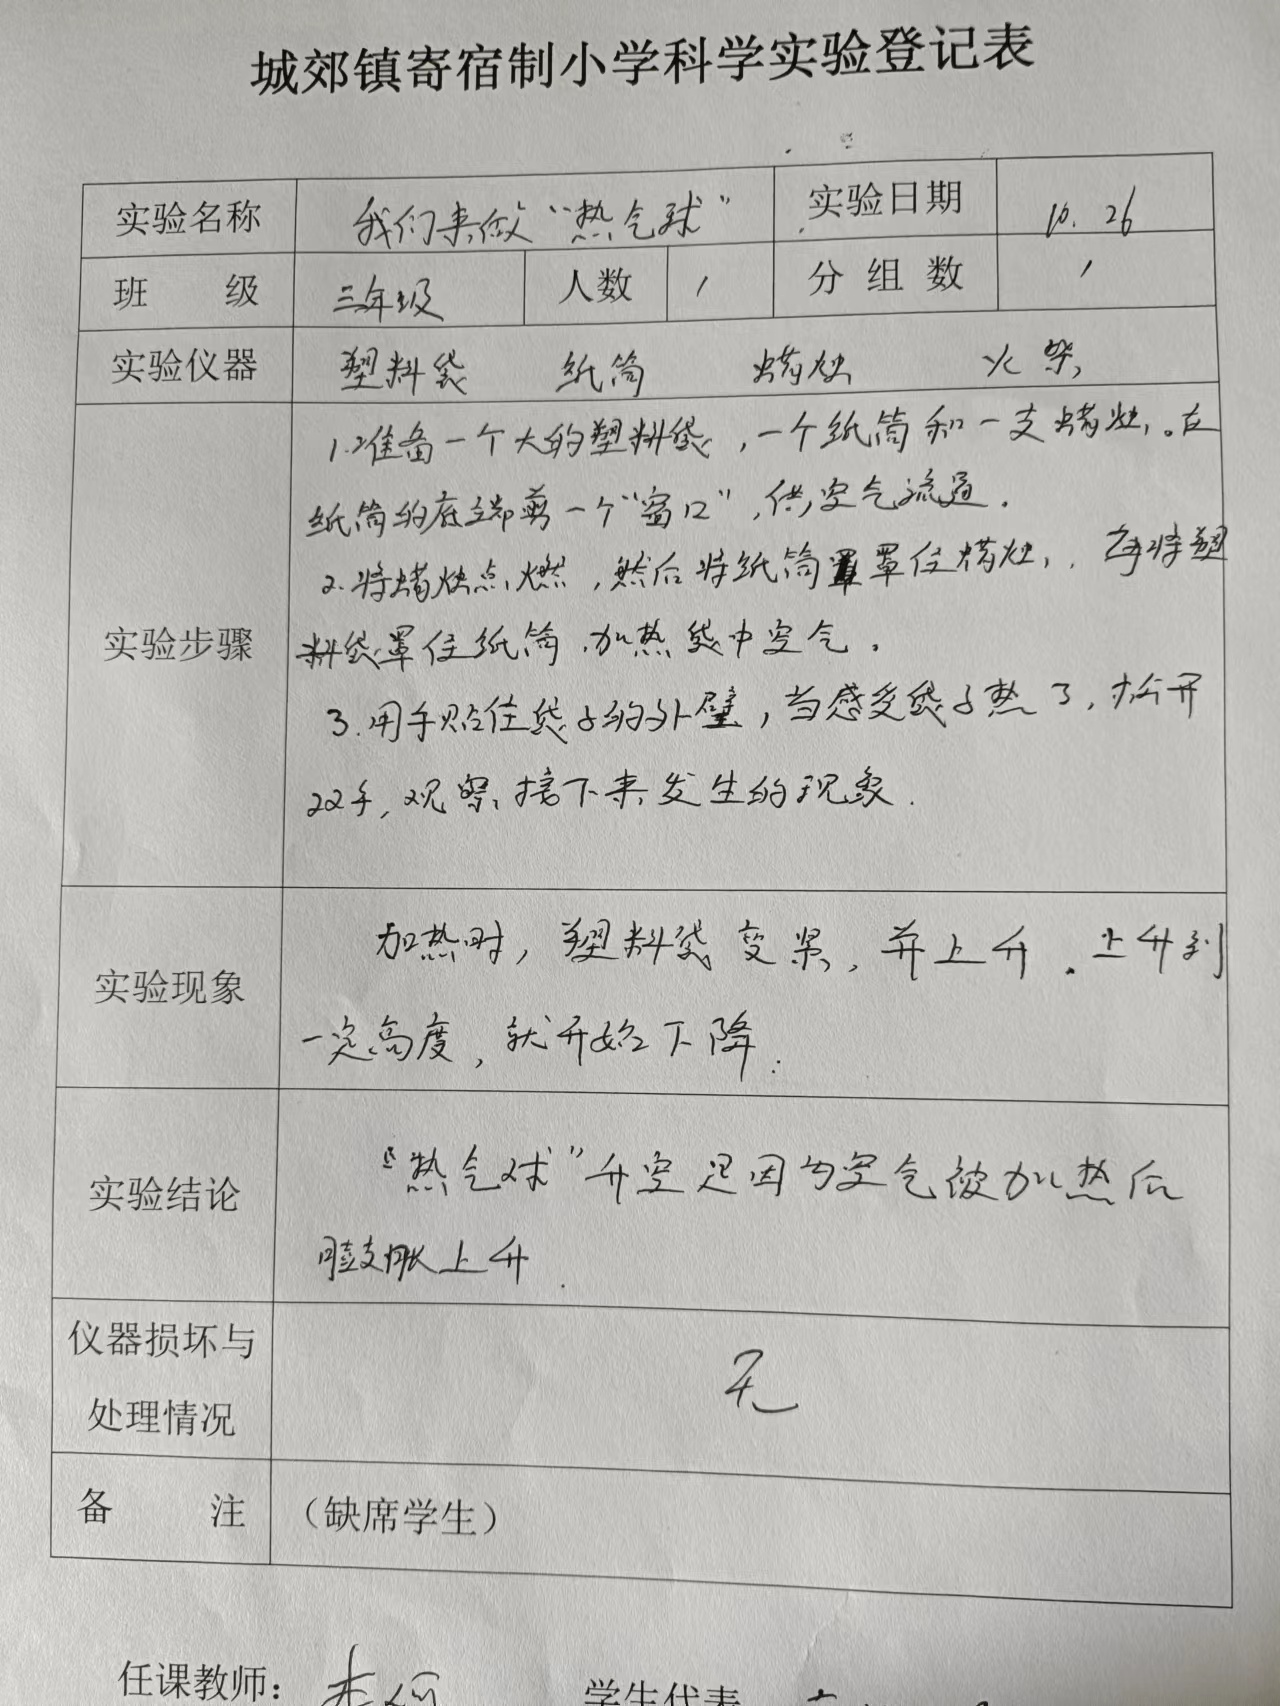 城郊镇寄宿制小学科学实验登记表
实验名称 我们来做“热气球” 实验日期 10.26
班 级 三年级 人数 1 分组数 1
实验仪器 塑料袋 纸筒 蜡烛 火柴
1.准备一个大的塑料袋，一个纸筒和一支蜡烛。在
纸筒的底端剪一个“窗口”，供空气流通.
2.将蜡烛点燃，然后将纸筒罩住蜡烛，再将塑
实验步骤
料袋罩住纸筒，加热袋中空气。
3.用手贴住袋子的外壁，当感受袋子热了，松开
双手，观察接下来发生的现象.
加热时，塑料袋变紧，并上升.上升到
实验现象
一定高度，就开始下降.
“热气球”升空是因为空气被加热后
实验结论
膨胀上升.
仪器损坏与
处理情况
无
备 注 （缺席学生）
任课教师：
学生代表